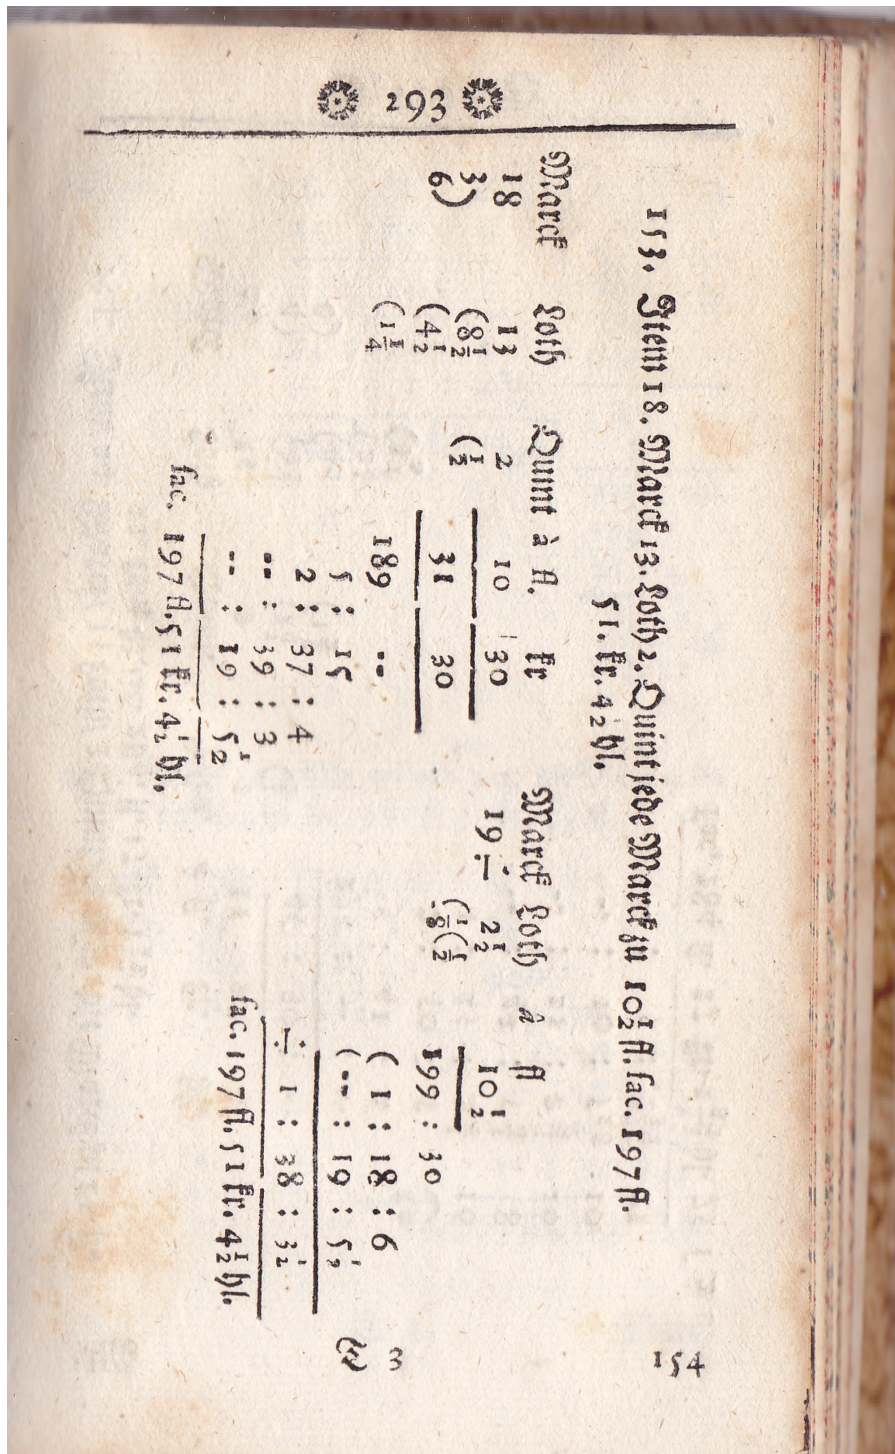 293
153. Item 18. Marck 13. Loth 2. Quint jede Marck zu 10½ fl. fac. 197 fl.
51. kr. 4½ hl.
Marck Loth Quint à fl. kr
18 13 2 10 30
3 (8½ (½
6) (4½ 31 30
(1¼ 189 --
5 : 15
2 : 37 : 4
-- : 39 : 3
-- : 19 : 5½
fac. 197 fl. 51 kr. 4½ hl.
Marck Loth â fl
19 ÷ 2½ 10½
(⅛(½
199 : 30
( 1 : 18 : 6
(-- : 19 : 5½
÷ 1 : 38 : 3½
fac. 197 fl. 51 kr. 4½ hl.
3
154